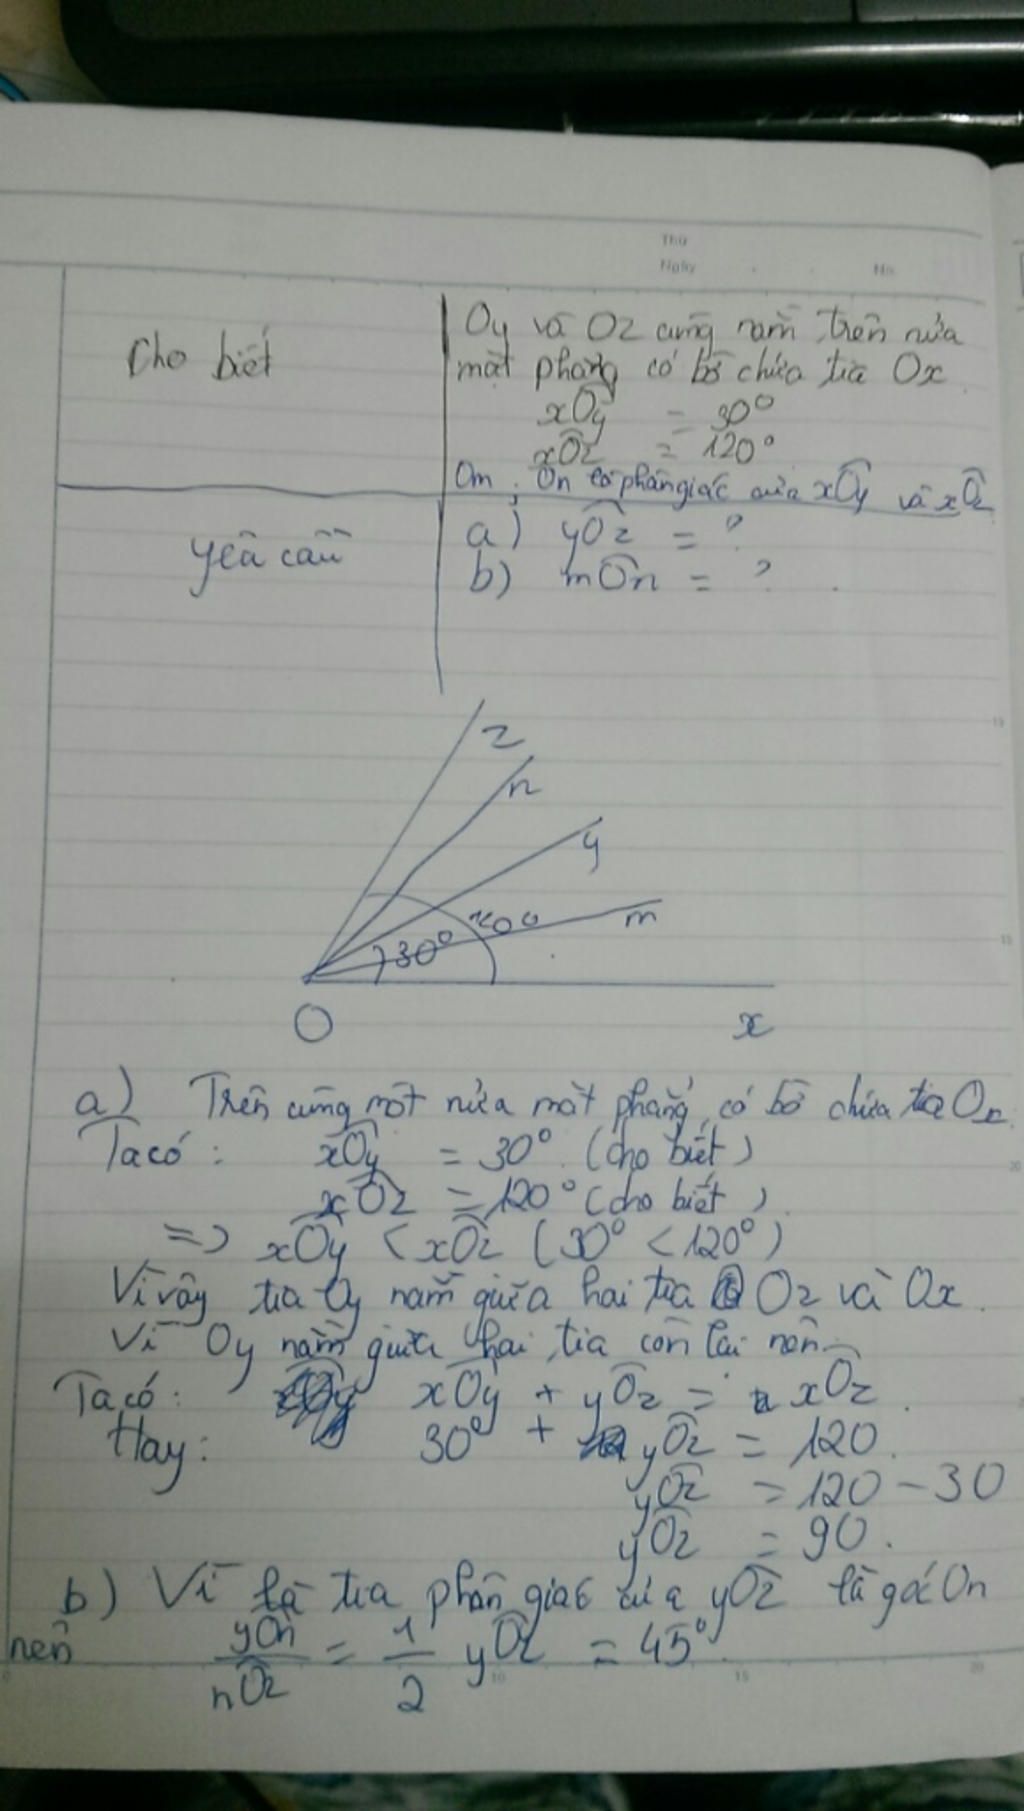 Thứ
Ngày
No.
Cho biết
Oy và Oz cùng nằm trên nửa
mặt phẳng có bờ chứa tia Ox
xOy = 30°
xOz = 120°
Om, On là phân giác của xOy và xOz
yêu cầu
a) yOz = ?
b) mOn = ?
z
n
y
m
30°
O
x
a) Trên cùng một nửa mặt phẳng có bờ chứa tia Ox.
Ta có: xOy = 30° (cho biết)
xOz = 120° (cho biết)
=> xOy < xOz (30° < 120°)
Vì vậy tia Oy nằm giữa hai tia Oz và Ox.
Vì Oy nằm giữa hai tia còn lại nên
Ta có: xOy + yOz = xOz.
Hay: 30° + yOz = 120.
yOz = 120 - 30
yOz = 90.
b) Vì là tia phân giác của yOz là góc On
nên yOn/nOz = 1/2 yOz = 45°.